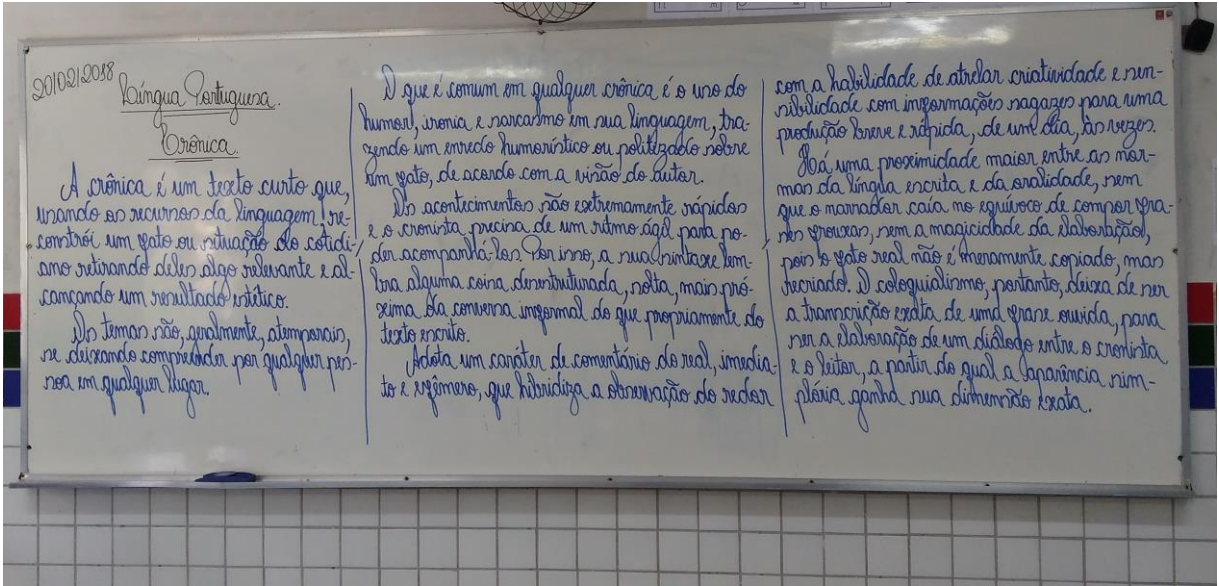 20/02/2018
Língua Portuguesa.
Crônica.
A crônica é um texto curto que,
usando os recursos da linguagem, re-
constrói um fato ou situação do cotidi-
ano retirando deles algo relevante e al-
cançando um resultado estético.
Os temas são, geralmente, atemporais,
se deixando compreender por qualquer pes-
soa em qualquer lugar.
O que é comum em qualquer crônica é o uso do
humor, ironia e sarcasmo em sua linguagem, tra-
zendo um enredo humorístico ou politizado sobre
um fato, de acordo com a visão do autor.
Os acontecimentos são extremamente rápidos
e o cronista precisa de um ritmo ágil para po-
der acompanhá-los. Por isso, a sua sintaxe lem-
bra alguma coisa desestruturada, solta, mais pró-
xima da conversa informal do que propriamente do
texto escrito.
Adota um caráter de comentário do real, imedia-
to e efêmero, que hibridiza a observação do redor
com a habilidade de atrelar criatividade e sen-
sibilidade com informações sagazes para uma
produção breve e rápida, de um dia, às vezes.
Há uma proximidade maior entre as nor-
mas da língua escrita e da oralidade, sem
que o narrador caía no equívoco de compor fra-
ses frouxas, sem a magicidade da elaboração,
pois o fato real não é meramente copiado, mas
recriado. O coloquialismo, portanto, deixa de ser
a transcrição exata de uma frase ouvida, para
ser a elaboração de um diálogo entre o cronista
e o leitor, a partir do qual a aparência sim-
plória ganha sua dimensão exata.